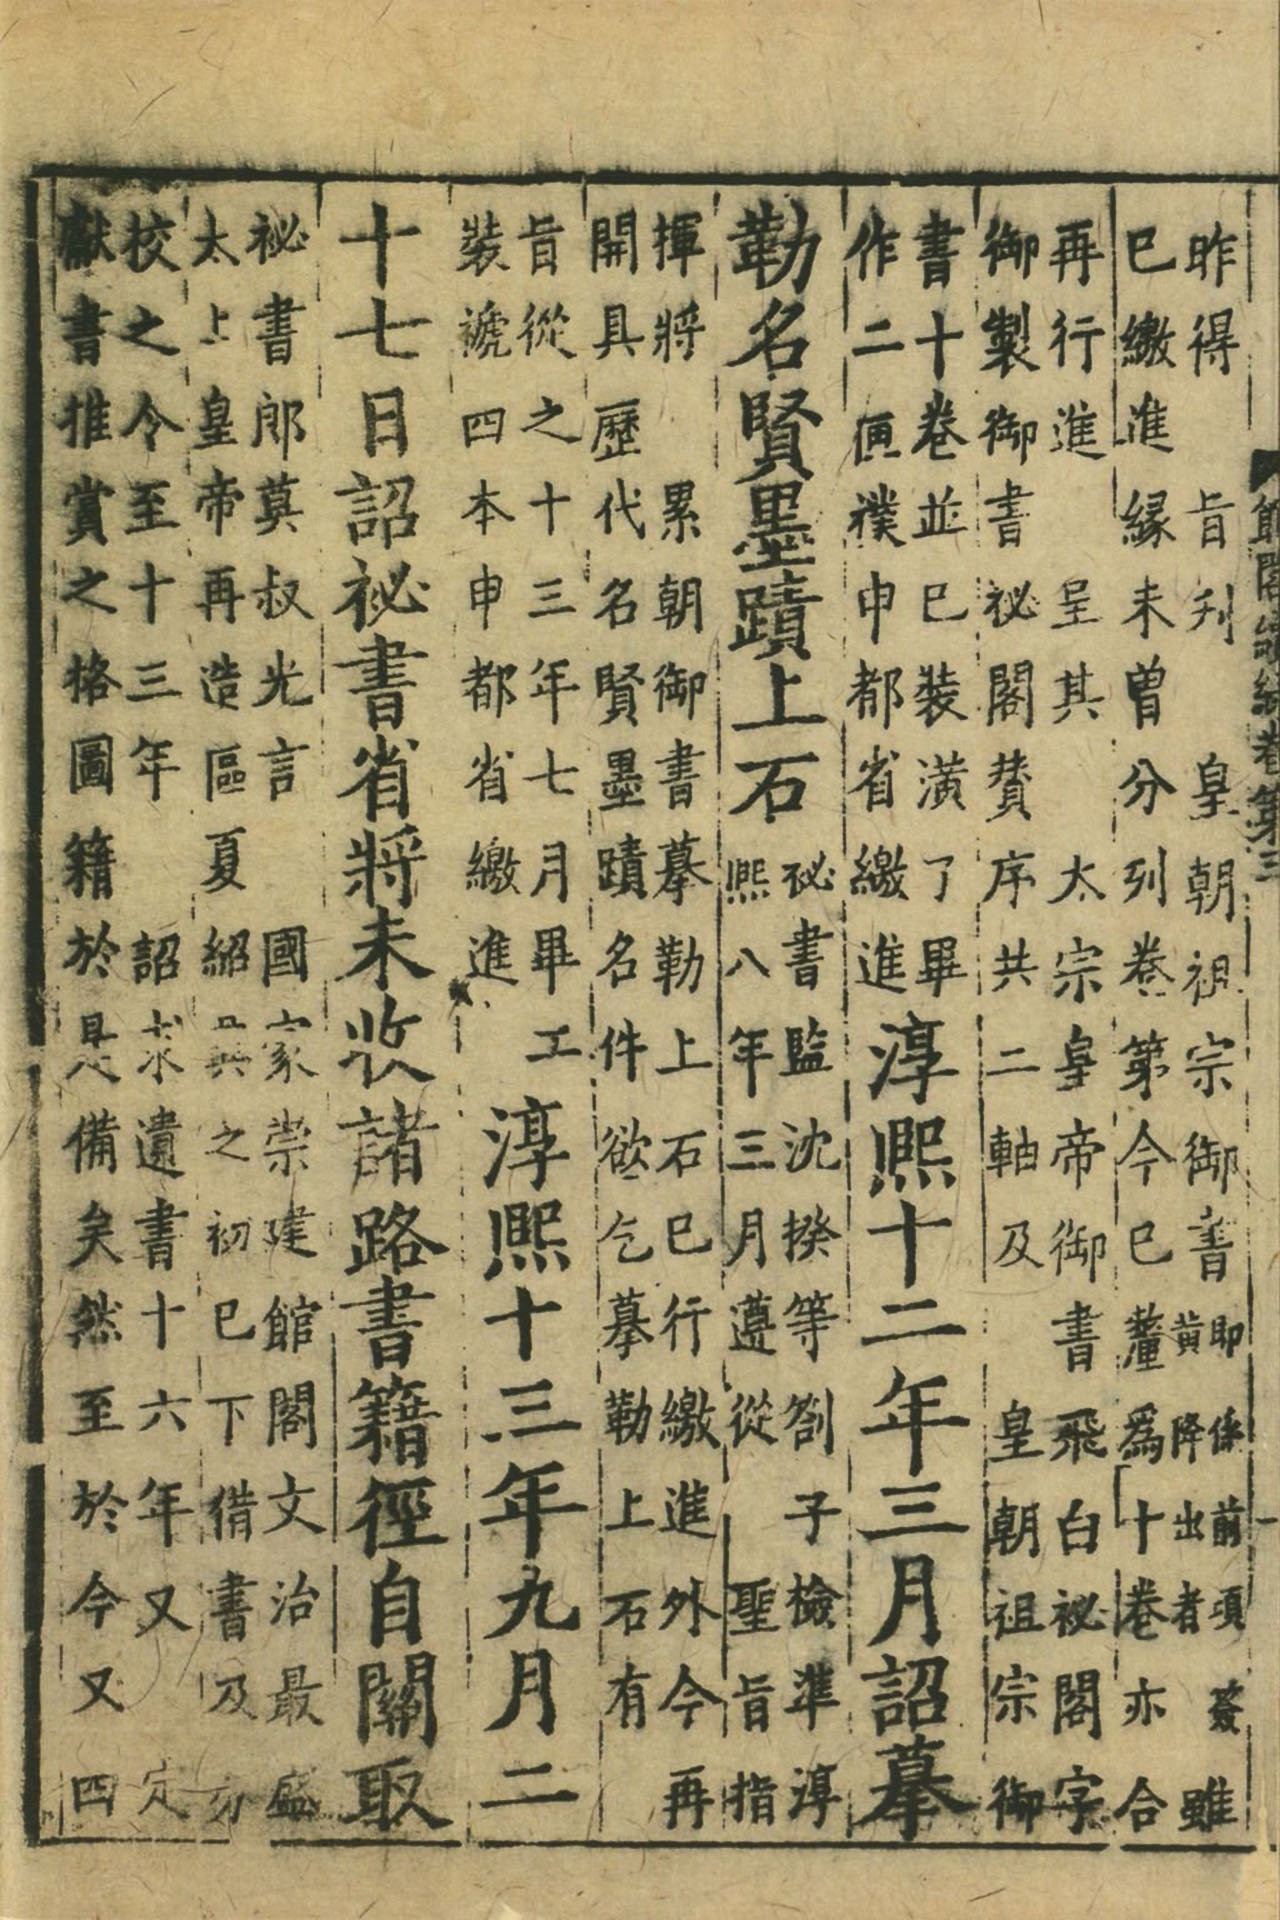 館閣續錄卷第三
昨得 旨刋 皇朝祖宗御書即係前項簽
黃降出者雖
巳繳進緣未曽分列卷第今巳釐爲十卷亦合
再行進 呈其 太宗皇帝御書飛白祕閣字
御製御書祕閣賛序共二軸及 皇朝祖宗御
書十卷並巳裝潢了畢
作二匣襆申都省繳進
淳熙十二年三月詔摹
勒名賢墨蹟上石
祕書監沈揆等劄子檢準淳
熙八年三月遵從 聖旨指
揮將 累朝御書摹勒上石巳行繳進外今再
開具歷代名賢墨蹟名件欲乞摹勒上石有
旨從之十三年七月畢工
裝褫四本申都省繳進
淳熙十三年九月二
十七日詔祕書省將未收諸路書籍徑自關取
祕書郎莫叔光言 國家崇建館閣文治最盛
太上皇帝再造區夏紹興之初巳下借書及分
校之令至十三年 詔求遺書十六年又定
獻書推賞之格圖籍於是備矣然至於今又四